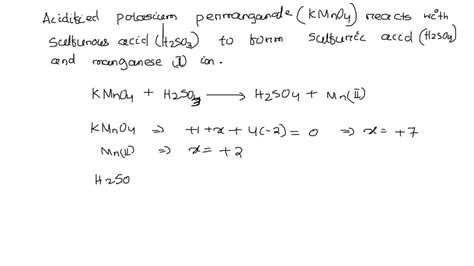 Acidified potasium permanganate (KMnO4) reacts with
sulfurous acid (H2SO3) to form sulfuric acid (H2SO4)
and manganese II ion.
KMnO4 + H2SO3 ⟶ H2SO4 + Mn(II)
KMnO4 ⇒ +1+x+4(-2)=0 ⇒ x=+7
Mn(II) ⇒ x=+2
H2SO